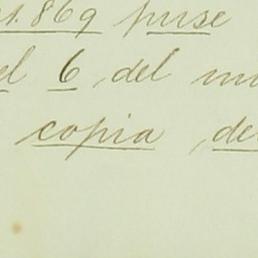 s. 869 puse
el 6, del m
copia, de